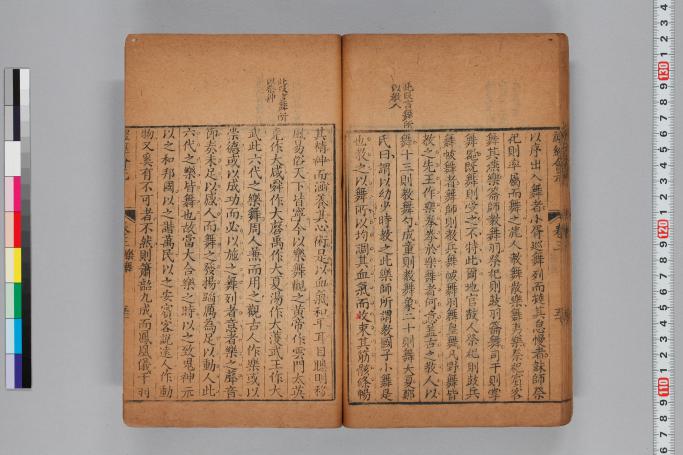 此段言舞所
以敎人
以序出入舞者小胥巡舞列而撻其怠慢者韎師祭
祀則率屬而舞之旄人敎舞散樂舞夷樂祭祀賓客
舞其燕樂籥師敎舞羽祭祀則鼓羽籥舞司干則掌
舞器既舞則受之不特此爾地官鼓人祭祀則鼓兵
舞帗舞者舞師則敎兵舞帗舞羽舞皇舞凡野舞皆
敎之先王作樂拳拳於樂舞者何意盖古之敎人以
舞十三則敎舞勺成童則敎舞象二十則舞大夏鄭
氏曰謂以幼少時敎之此樂師所謂敎國子小舞是
也敎之以舞所以均調其血氣而收束其筋骸條暢
此段言舞所
以祭神
其精神而涵養其心術是以血氣和平耳目聰明移
風易俗天下皆寧今以樂舞觀之黃帝作雲門太英
堯作大咸舜作大磬禹作大夏湯作大濩武王作大
武此六代之樂舞周人兼而用之觀古人作樂或以
崇德或以成功而必以爐之舞列者意者樂之聲音
節奏未足以感人而舞之發揚蹈厲為足以動人此
六代之樂皆舞也故當大合樂之時以之致鬼神示
以之和邦國以之諧萬民以之安賓客說遠人作動
物又奚有不可者不然則簫韶九成而鳳凰儀干羽
卷三 樂舞